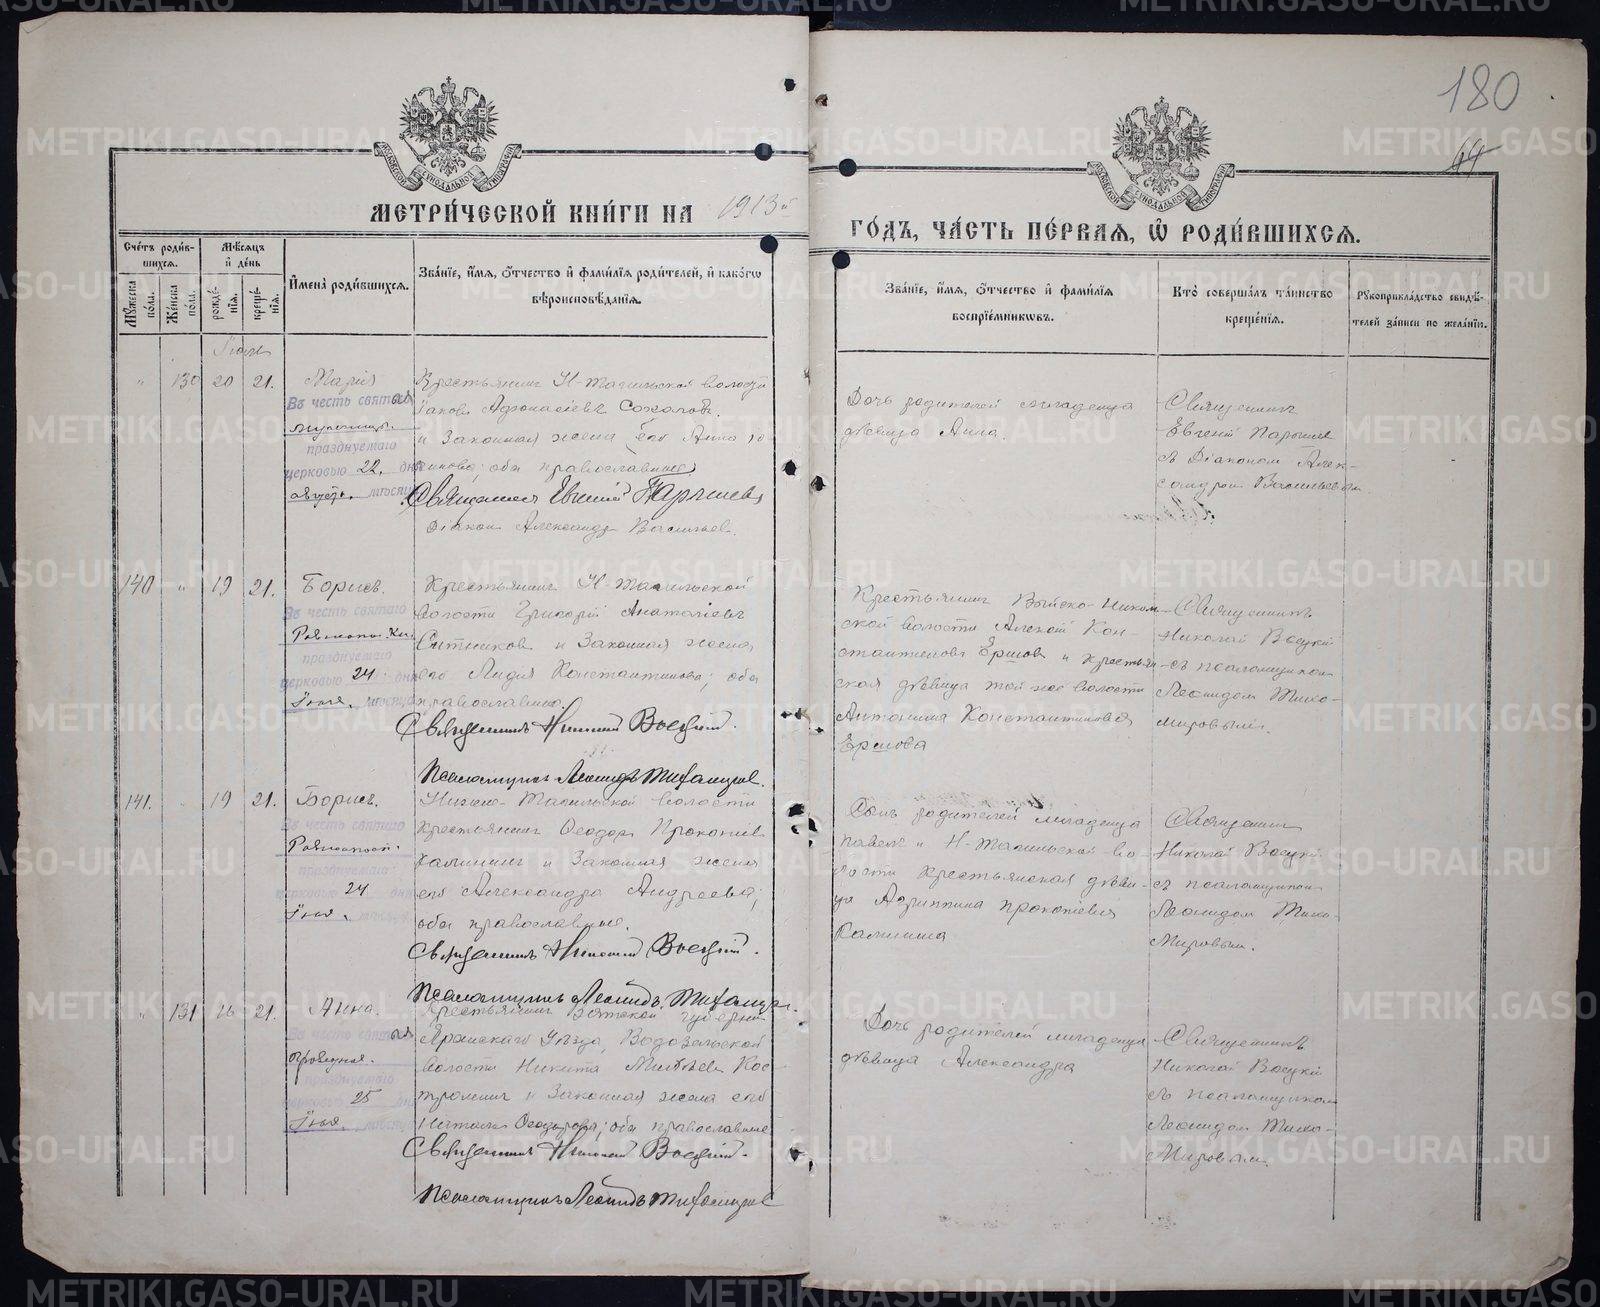 180
44
МОСКОВСКОЙ СУНОДАЛЬНОЙ ТИПОГРАФИИ
МОСКОВСКОЙ СУНОДАЛЬНОЙ ТИПОГРАФИИ
МЕТРИ́ЧЕСКОЙ КНИ́ГИ НА 1913й
ГО́ДЪ, ЧА́СТЬ ПЕ́РВАЯ, Ѡ РОДИ́ВШИХСЯ.
Сче́тъ роди́в-
шихся.
Мѣ́сяцъ
и҆ де́нь
Мꙋ́жеска по́ла.
Же́нска по́ла.
рожде́-
нїя.
креще́-
нїя.
И҆мена̀ роди́вшихся.
Зва́нїе, и҆́мя, ѻ҆́тчество и҆ фами́лїя роди́телей, и҆ како́гѡ
вѣроисповѣ́данїя.
Зва́нїе, и҆́мя, ѻ҆́тчество и҆ фами́лїя
воспрїе́мникѡвъ.
Кто̀ соверша́лъ та́инство
креще́нїя.
Рꙋкоприкла́дство свидѣ́-
телей за́писи по жела́нїю.
Іюль
" 130 20 21. Марія
Въ честь святыя
мученицы.
празднуемаго
церковью 22. дня
августа. мѣсяца
Крестьянинъ Н-Тагильской волости
Іаковъ Афонасіевъ Соколовъ
и Законная жена его Анна
обa православные
Священникъ Евгеній Парышевъ
Діаконъ Александръ Васильевъ.
Дочь родителей младенца
дѣвица Анна.
Священникъ
Евгеній Парышевъ
съ Діакономъ Алек-
сандромъ Васильевым
140 " 19 21. Борисъ.
Въ честь святаго
Равноапос. Кн.
празднуемаго
церковью 24. дня
Іюля. мѣсяца
Крестьянинъ Н-Тагильской
волости Григорій Анатоліевъ
Ситниковъ и Законная жена
его Лидія Константинова; оба
православные.
Священникъ Николай Воецкій.
Псаломщикъ Леонидъ Тихомировъ.
Крестьянинъ Выйско-Никол-
ской волости Алексій Кон-
стантиновъ Ершовъ и крестьян-
ская дѣвица той же волости
Антонина Константиновна
Ершова
Священникъ
Николай Воецкій
съ псаломщикомъ
Леонидом Тихо-
мировымъ.
141. 19 21. Борисъ.
Въ честь святаго
Равноапост.
празднуемаго
церковью 24 дня
Іюля. мѣсяца
Нижне-Тагильской волости
крестьянинъ Ѳеодоръ Прокопіевъ
Калининъ и Законная жена
его Александра Андреева;
оба православные.
Священникъ Николай Воецкій.
Псаломщикъ Леонидъ Тихомировъ.
Сынъ родителей младенца
Павелъ и Н-Тагильской во-
лости крестьянская дѣви-
ца Агриппина Прокопіевна
Калинина
Священникъ
Николай Воецкій
съ псаломщикомъ
Леонидом Тихо-
мировым.
" 131 16 21. Анна.
Въ честь святыя
праведныя.
празднуемаго
церковью 25 дня
Іюля. мѣсяца
Крестьянинъ Вятской губерніи
Яранскаго Уѣзда, Водозельской
волости Никита Матвѣевъ Кос-
троминъ и Законная жена его
Наталья Ѳеодорова; оба православные
Священникъ Николай Воецкій.
Псаломщикъ Леонидъ Тихомировъ
Дочь родителей младенца
дѣвица Александра
Священникъ
Николай Воецкій
съ псаломщиком
Леонидом Тихо-
мировым.
METRIKI.GASO-URAL.RU